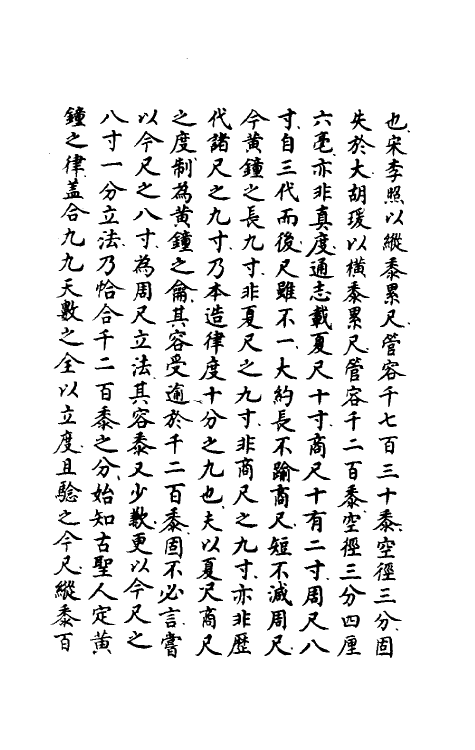 也宋李照以縱黍累尺管容千七百三十黍空徑三分固
失於大胡瑗以橫黍累尺管容千二百黍空徑三分四厘
六毫亦非真度通志載夏尺十寸商尺十有二寸周尺八
寸自三代而後尺雖不一大約長不踰商尺短不減周尺
今黃鐘之長九寸非夏尺之九寸非商尺之九寸亦非歷
代諸尺之九寸乃本造律度十分之九也夫以夏尺商尺
之度制為黃鐘之龠其容受逾於千二百黍固不必言嘗
以今尺之八寸為周尺立法其容黍又少歉更以今尺之
八寸一分立法乃恰合千二百黍之分始知古聖人定黃
鐘之律蓋合九九天數之全以立度且驗之今尺縱黍百